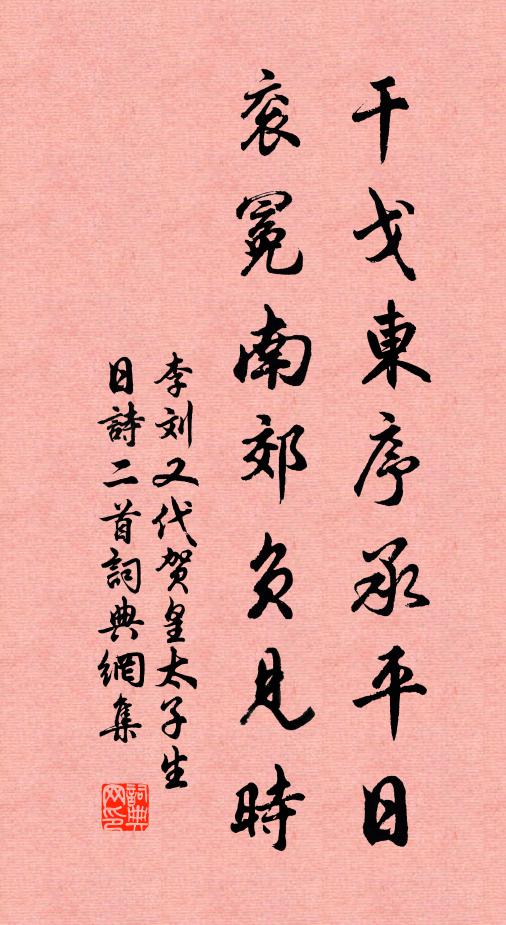 干戈東序承平日
衮冕南郊負見時
李刘又代贺皇太子生
日詩二首詞典網集
詞典
网印